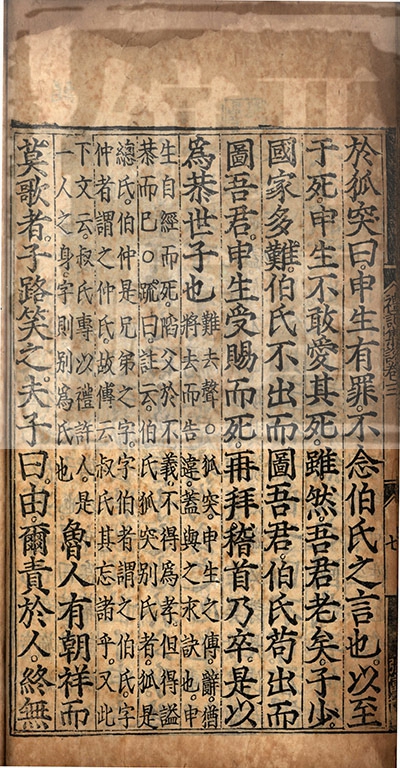 禮記集說卷三
七
於狐突曰。申生有罪。不念伯氏之言也。以至
于死。申生不敢愛其死。雖然。吾君老矣。子少。
國家多難。伯氏不出而圖吾君。伯氏苟出而
圖吾君。申生受賜而死。再拜稽首乃卒。是以
爲恭世子也
難去聲。○狐突。申生之傳。辭猶
將去而告違。蓋與之永訣也。申
生自經而死。陷父於不義。不得爲孝。但得謚
恭而已。○䟽曰。註云。伯氏狐突別氏者。狐是
總氏。伯仲是兄弟之字。字伯者謂之伯氏。字
仲者謂之仲氏。故傳云。叔氏其忘諸乎。又此
下文云。叔氏專以禮許人。是
一人之身。字則別爲氏也
魯人有朝祥而
莫歌者。子路笑之。夫子曰。由。爾責於人。終無